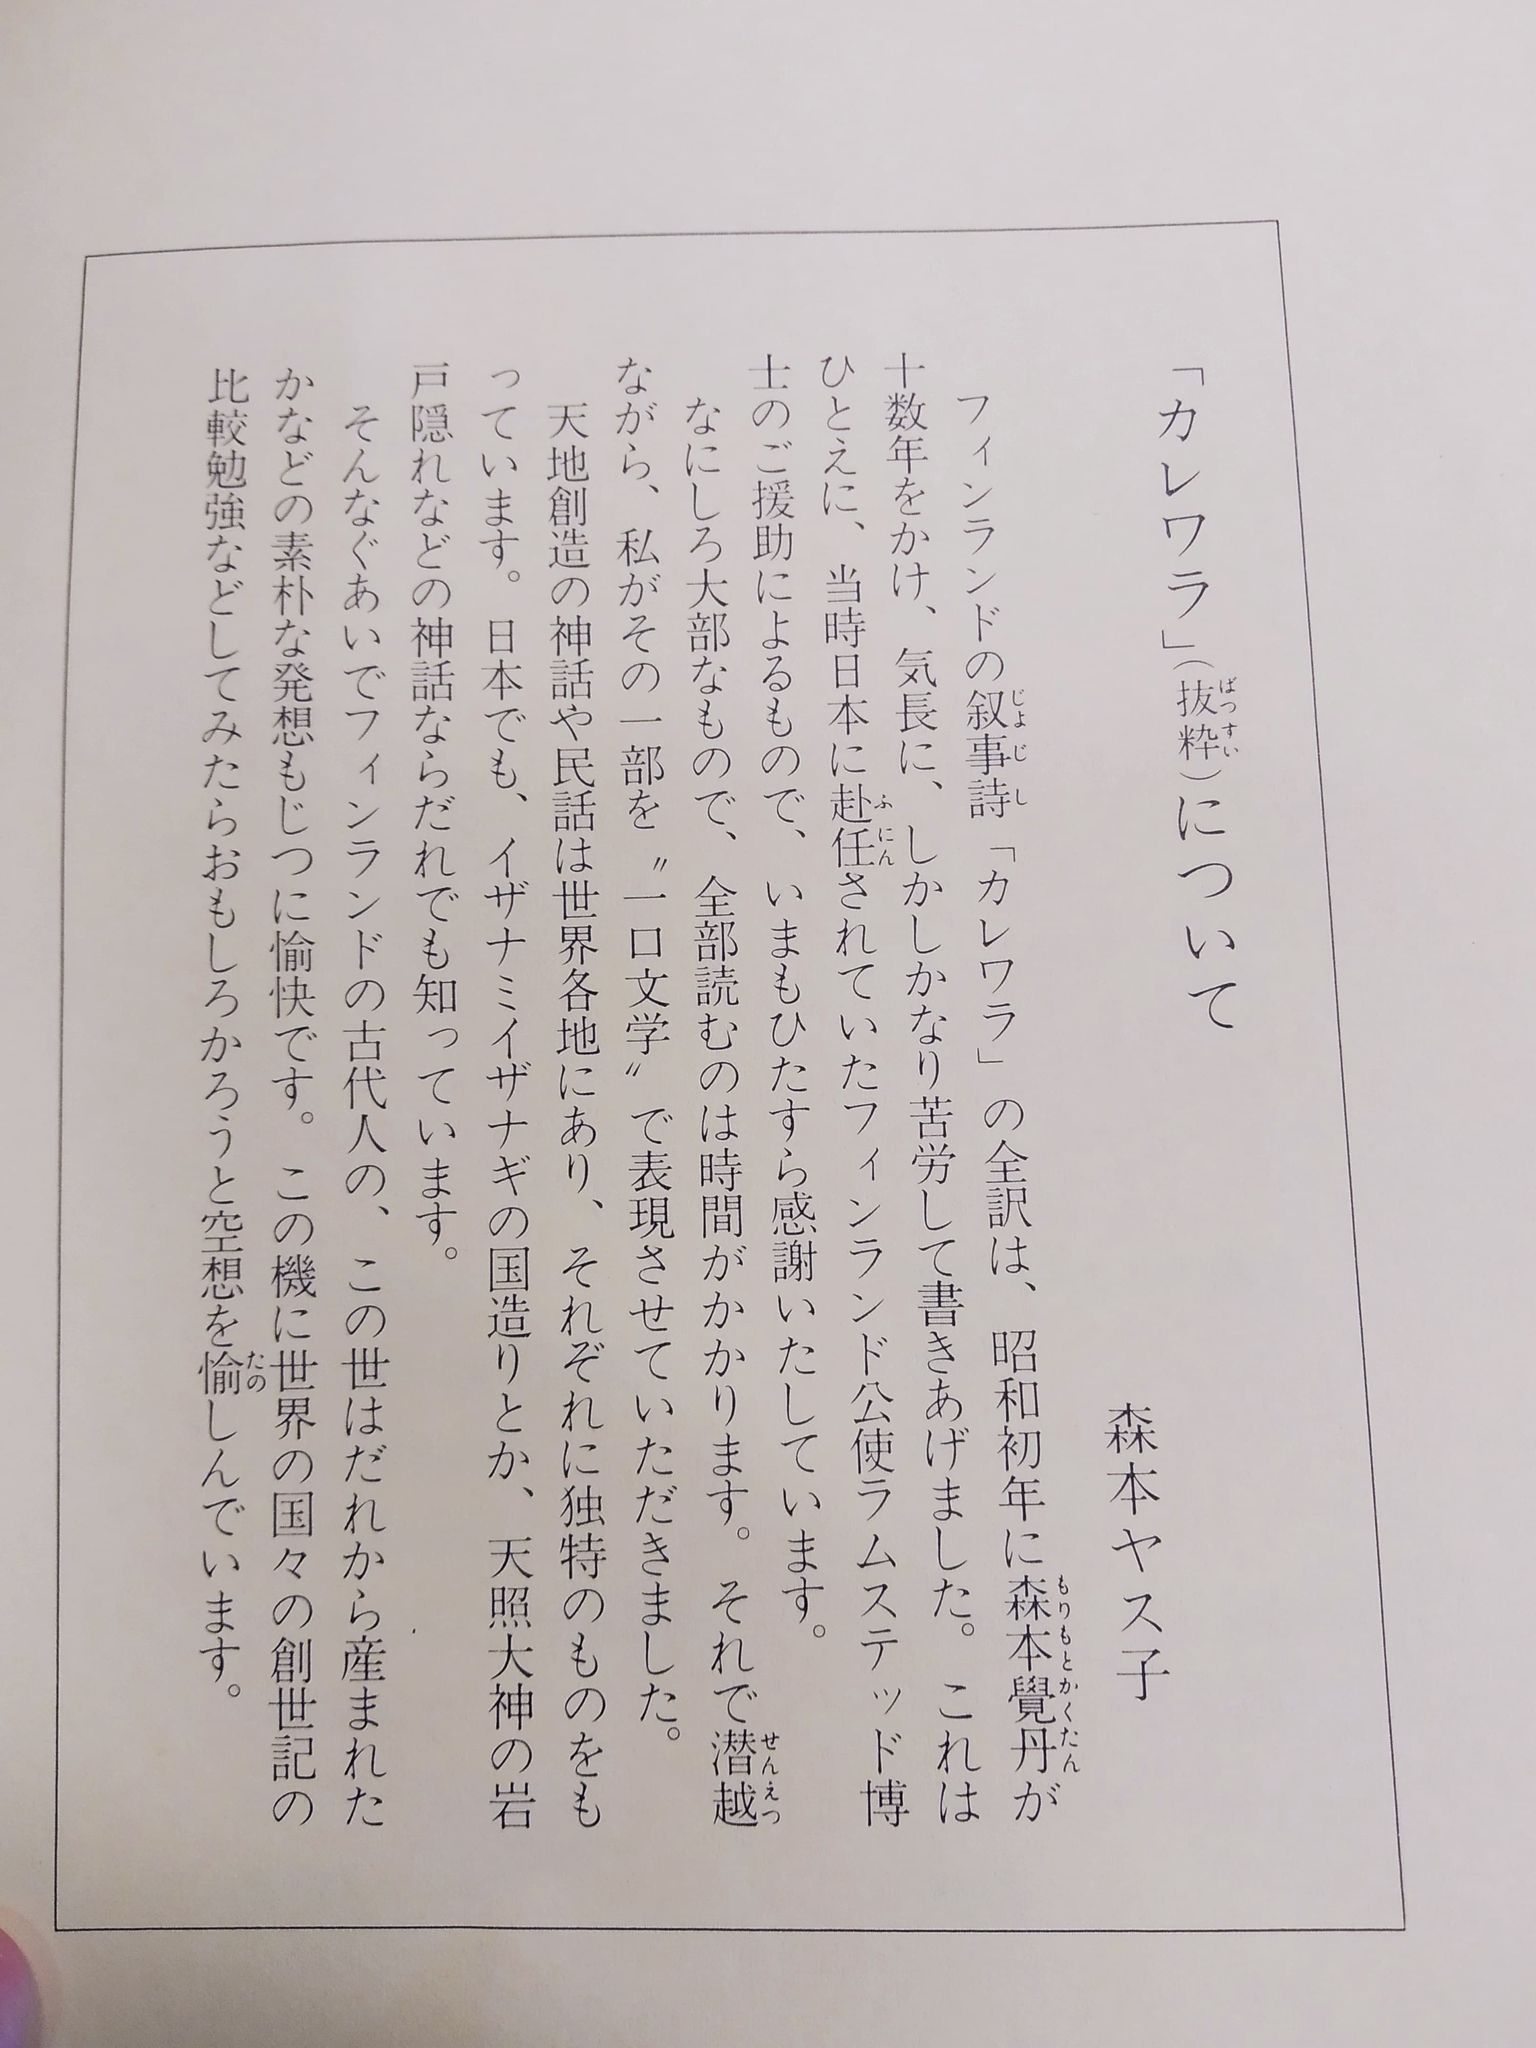 「カレワラ」（抜粋）について
森本ヤス子
フィンランドの叙事詩「カレワラ」の全訳は、昭和初年に森本覺丹が
十数年をかけ、気長に、しかしかなり苦労して書きあげました。これは
ひとえに、当時日本に赴任されていたフィンランド公使ラムステッド博
士のご援助によるもので、いまもひたすら感謝いたしています。
なにしろ大部なもので、全部読むのは時間がかかります。それで潜越
ながら、私がその一部を〝一口文学〟で表現させていただきました。
天地創造の神話や民話は世界各地にあり、それぞれに独特のものをも
っています。日本でも、イザナミイザナギの国造りとか、天照大神の岩
戸隠れなどの神話ならだれでも知っています。
そんなぐあいでフィンランドの古代人の、この世はだれから産まれた
かなどの素朴な発想もじつに愉快です。この機に世界の国々の創世記の
比較勉強などしてみたらおもしろかろうと空想を愉しんでいます。